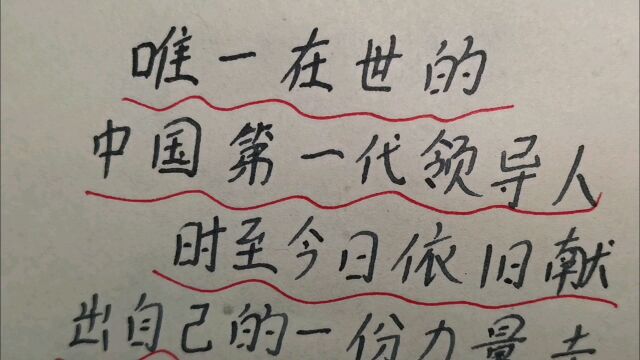 唯一在世的
中国第一代领导人
时至今日依旧献
出自己的一份力量去